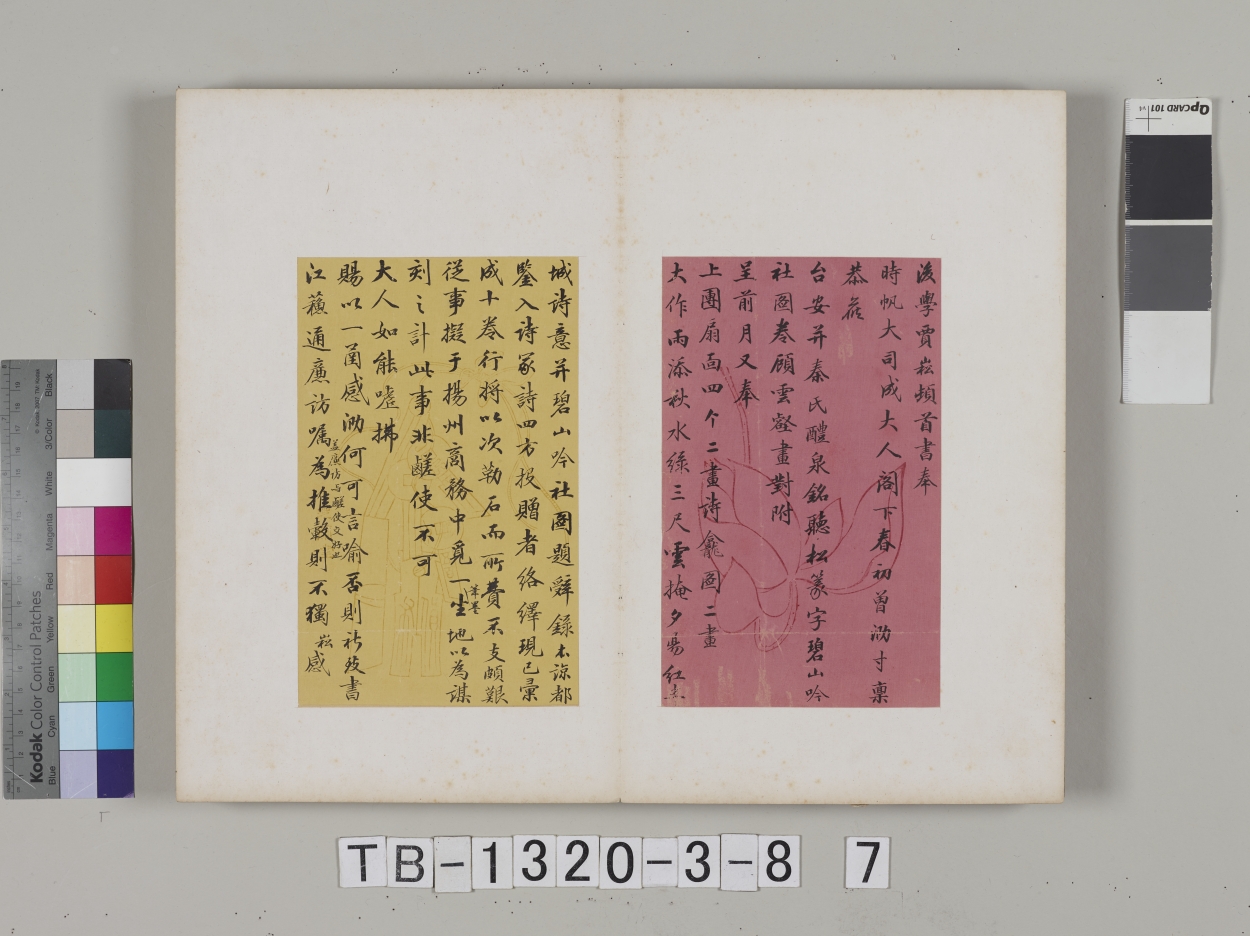 後學賈崧頓首書奉
時帆大司成大人閣下春初曾泐寸稟
恭
台安并秦氏醴泉銘聽松篆字碧山吟
社圖卷顧雲壑畫對附
呈前月又奉
上團扇面四个二畫詩龕圖二畫
大作雨添秋水綠三尺雲掩夕陽紅
城詩意并碧山吟社圖題辭錄本諒都
鑒入詩冢詩四方投贈者絡繹現已彙
成十卷行將以次勒石而所費不支頗艱
從事擬于揚州商務中覓一坐地以為謀
刻之計此事非鹺使不可
大人如能噓拂
賜以一函感泐何可言喻否則祈致書
江蘇通廉訪囑為推轂則不獨崧感
廉訪与鹺使交好也
Kodak Color Control Patches
© Kodak
Blue
Cyan
Green
Yellow
Red
Magenta
White
3/Color
Black
QpCARD 101 v4
TB-1320-3-8 7